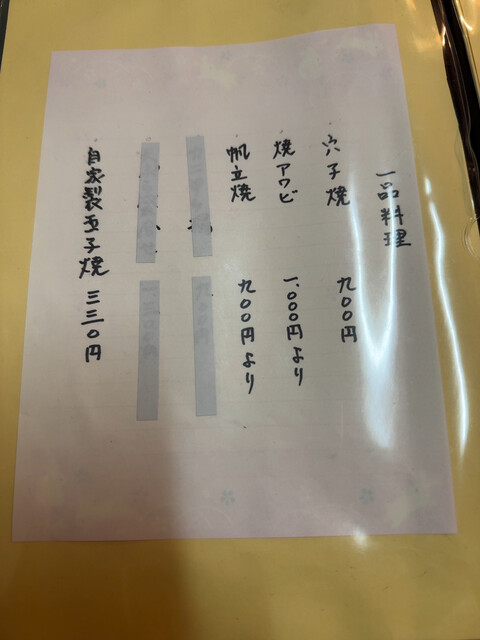 一品料理
穴子焼 九〇〇円
焼アワビ 一、〇〇〇円より
帆立焼 九〇〇円より
自家製玉子焼 三三〇円